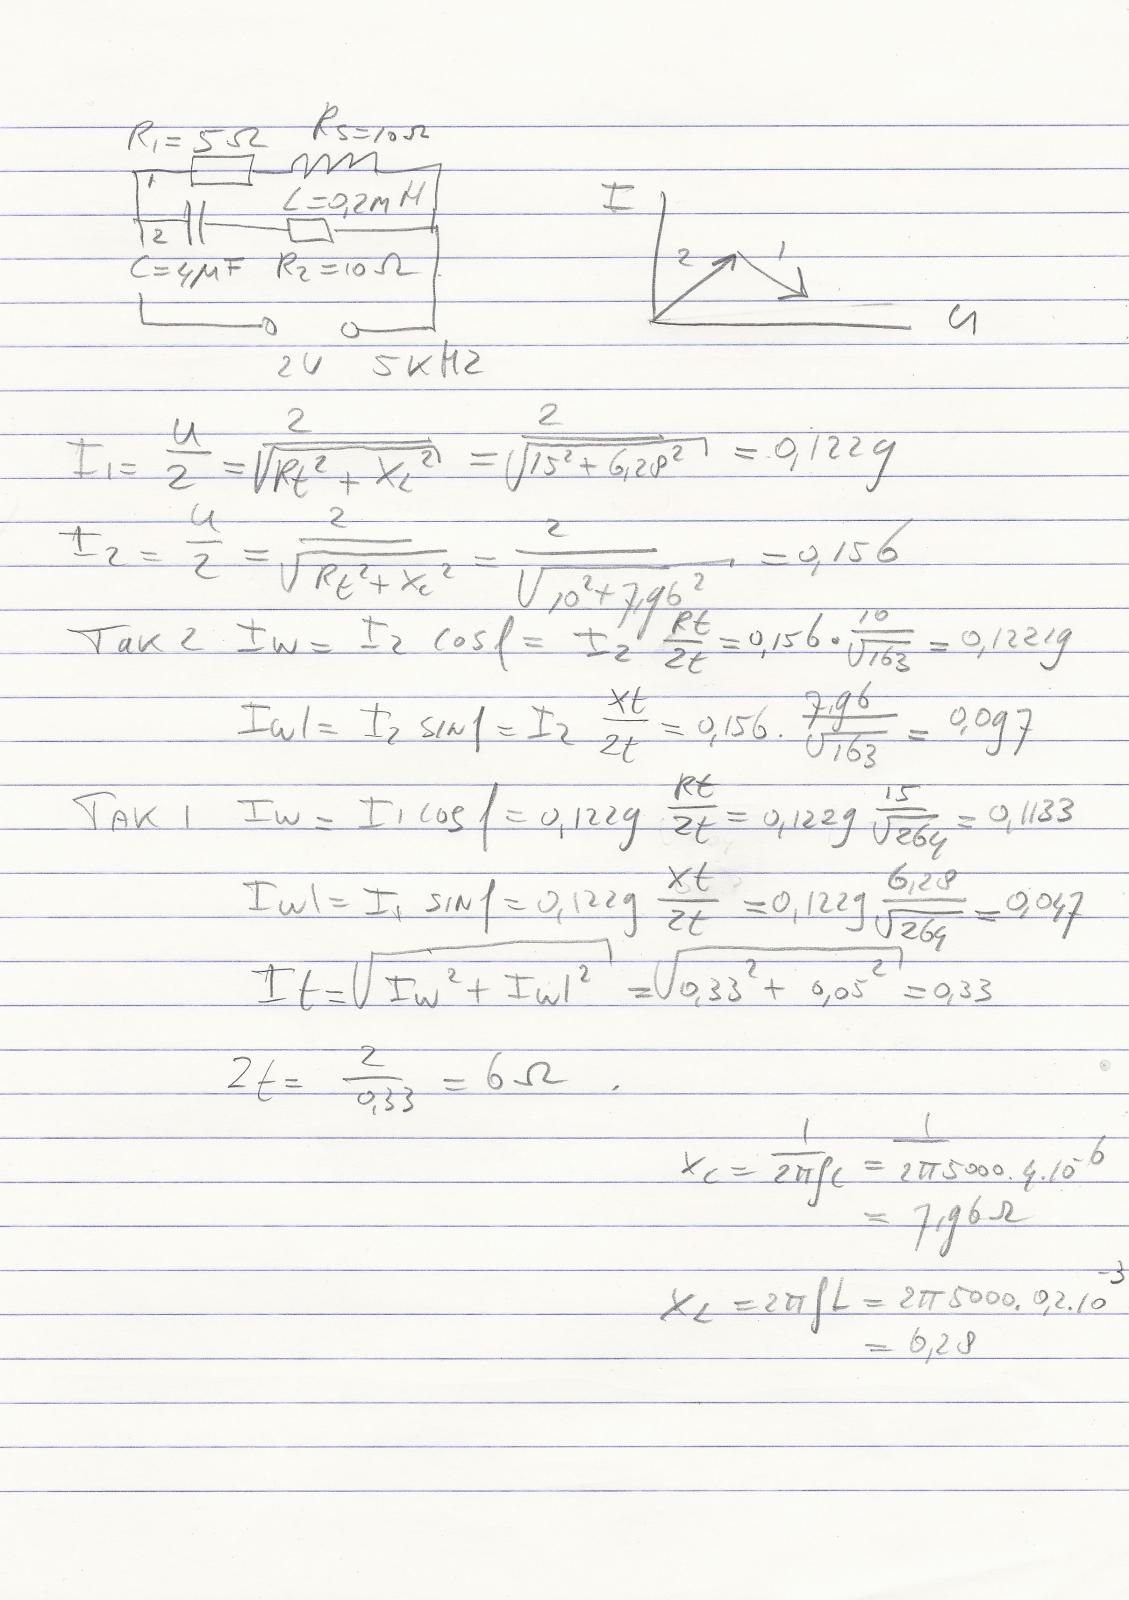 R₁=5Ω Rs=10Ω
1 L=0,2mH
2
C=4μF R₂=10Ω
2V 5KHZ
I
2 1
U
I₁ = U/Z = 2/√(Rt² + XL²) = 2/√(15² + 6,28²) = 0,1229
I₂ = U/Z = 2/√(Rt² + Xc²) = 2/√(10² + 7,96²) = 0,156
TAK 2 Iw = I₂ cosφ = I₂ Rt/Zt = 0,156 · 10/√163 = 0,12219
Iwl = I₂ sinφ = I₂ Xt/Zt = 0,156 · 7,96/√163 = 0,097
TAK 1 Iw = I₁ cosφ = 0,1229 Rt/Zt = 0,1229 15/√264 = 0,1133
Iwl = I₁ sinφ = 0,1229 Xt/Zt = 0,1229 6,28/√264 = 0,047
It = √(Iw² + Iwl²) = √(0,33² + 0,05²) = 0,33
Zt = 2/0,33 = 6Ω .
Xc = 1/2πfC = 1/2π5000.4.10⁻⁶
= 7,96Ω
XL = 2πfL = 2π5000.0,2.10⁻³
= 6,28